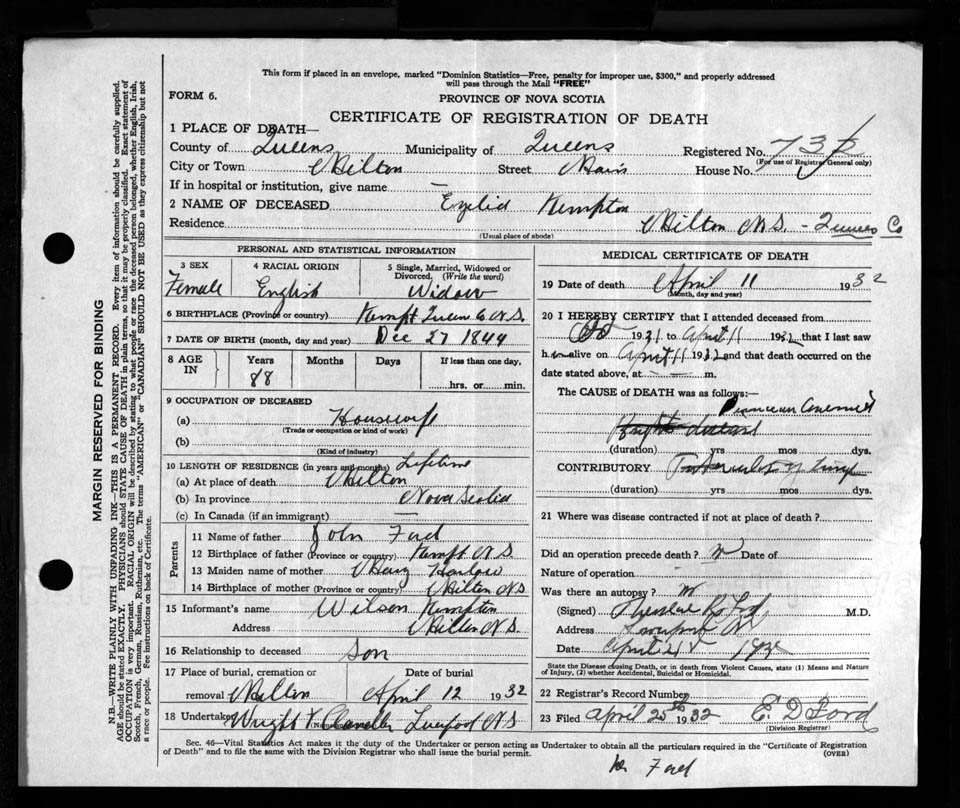 This form if placed in an envelope, marked "Dominion Statistics—Free, penalty for improper use, $300," and properly addressed
will pass through the Mail "FREE"
FORM 6.
PROVINCE OF NOVA SCOTIA
CERTIFICATE OF REGISTRATION OF DEATH
1 PLACE OF DEATH—
County of Queens Municipality of Queens Registered No. 73
(For use of Registrar General only)
City or Town Milton Street Main House No.
If in hospital or institution, give name —
2 NAME OF DECEASED Kempton
Residence Milton N.S. - Queens Co
(Usual place of abode)
PERSONAL AND STATISTICAL INFORMATION
3 SEX 4 RACIAL ORIGIN 5 Single, Married, Widowed or
Divorced. (Write the word)
Female English Widow
6 BIRTHPLACE (Province or country) Kempt Queens Co N.S.
7 DATE OF BIRTH (month, day and year) Dec 27 1844
8 AGE IN Years Months Days If less than one day,
88 hrs. or min.
9 OCCUPATION OF DECEASED
(a) Housewife
(Trade or occupation or kind of work)
(b)
(Kind of industry)
10 LENGTH OF RESIDENCE (in years and months) Lifetime
(a) At place of death Milton
(b) In province Nova Scotia
(c) In Canada (if an immigrant) —
Parents
11 Name of father John Ford
12 Birthplace of father (Province or country) Kempt N S
13 Maiden name of mother Mary Harlow
14 Birthplace of mother (Province or country) Milton N S
15 Informant's name Wilson Kempton
Address Milton N S.
16 Relationship to deceased Son
17 Place of burial, cremation or Date of burial
removal Milton April 12 1932
18 Undertaker Wright & Chandler Liverpool N S
(Name and address)
MEDICAL CERTIFICATE OF DEATH
19 Date of death April 11 1932
(Month, day and year)
20 I HEREBY CERTIFY that I attended deceased from
Oct 1931 to April 11 1932 that I last saw
h alive on April 11 1932 and that death occurred on the
date stated above, at — — m.
The CAUSE OF DEATH was as follows:—
Anaemia
Brights disease
(duration) yrs mos dys.
CONTRIBUTORY Tuberculosis of lungs
(duration) yrs mos dys.
21 Where was disease contracted if not at place of death?
Did an operation precede death? Date of
Nature of operation
Was there an autopsy?
(Signed) M.D.
Address
Date April
State the Disease causing Death, or in death from Violent Causes, state (1) Means and Nature
of Injury, (2) whether Accidental, Suicidal or Homicidal.
22 Registrar's Record Number
23 Filed April 25th 1932 E. D Ford
(Division Registrar)
Sec. 46—Vital Statistics Act makes it the duty of the Undertaker or person acting as Undertaker to obtain all the particulars required in the "Certificate of Registration
of Death" and to file the same with the Division Registrar who shall issue the burial permit.
(OVER)
Ford
MARGIN RESERVED FOR BINDING
N.B.—WRITE PLAINLY WITH UNFADING INK—THIS IS A PERMANENT RECORD. Every item of information should be carefully supplied.
AGE should be stated EXACTLY. PHYSICIANS should STATE CAUSE OF DEATH in plain terms, so that it may be properly classified. Exact statement of
OCCUPATION is very important. RACIAL ORIGIN will be described by stating to what people or race the deceased person belonged, whether English, Irish,
Scotch, French, German, Russian, Ruthenian, etc. The terms "AMERICAN" or "CANADIAN" SHOULD NOT BE USED as they express citizenship but not
a race or people. See instructions on back of Certificate.